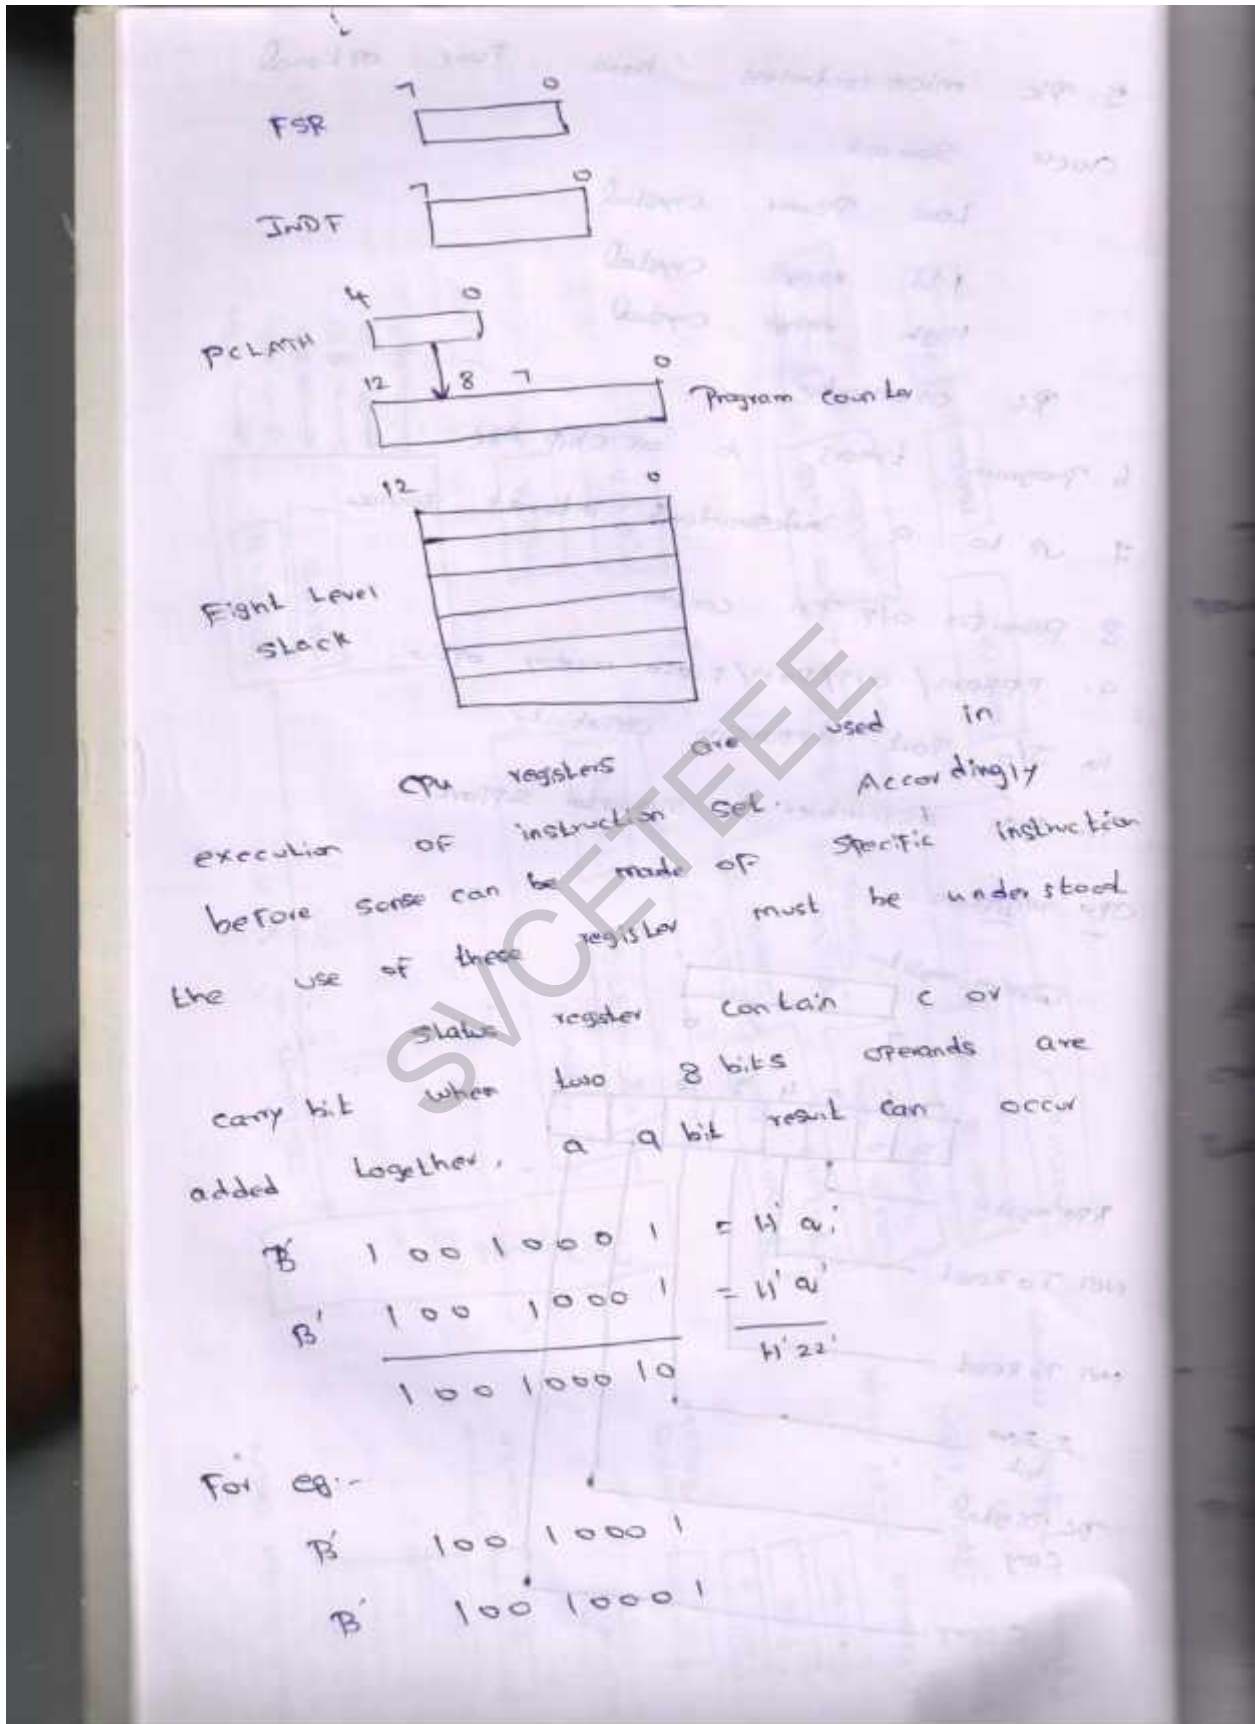 7 0
FSR
7 0
INDF
4 0
PCLATH
12 8 7 0
Program counter
12 0
Eight Level
stack
CPU registers are used in
execution of instruction set. Accordingly
before sense can be made of specific instruction
the use of these register must be understood
status register contain c or
carry bit when two 8 bits operands are
added together, a 9 bit result can occur
B' 1 00 1000 1 = H' 9'
B' 100 1000 1 = H' 9'
100 1000 10 H' 22'
For eg:-
B' 100 1000 1
B' 100 1000 1
SVCETEEE